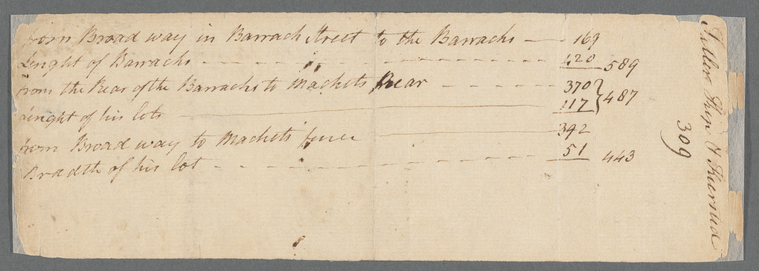 from Broad way in Barrack Street to the Barracks — 169
Lenght of Barracks - - - 420 589
from the Rear of the Barracks to Mackets rear - - - 370
Lenght of his lots — 117 487
from Broad way to Mackets fence — 392
Bradth of his lot - - - 51 443
309